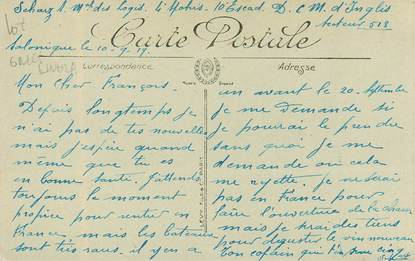 Schurz 1. Mis des Logis. 4e Hohis. 10e Escad. D. C. M. d'Inglis
Secteur 518
Salonique le 10-9-17
Carte Postale
Correspondance
Adresse
Mon Cher François.
Depuis longtemps je
n'ai pas de tes nouvelles
mais j'espère quand
même que tu es
en bonne santé. J'attends
toujours le moment
propice pour rentrer en
France, mais les bateaux
sont très rares. il y en a
un avant le 20 Septembre
je me demande si
je pourrai le prendre
sans quoi je me
demande où cela
me rejette. je ne serai
pas en France pour
faire l'ouverture de la chasse
mais je irai des tiens
pour déguster le vin nouveau
Ton copain qui